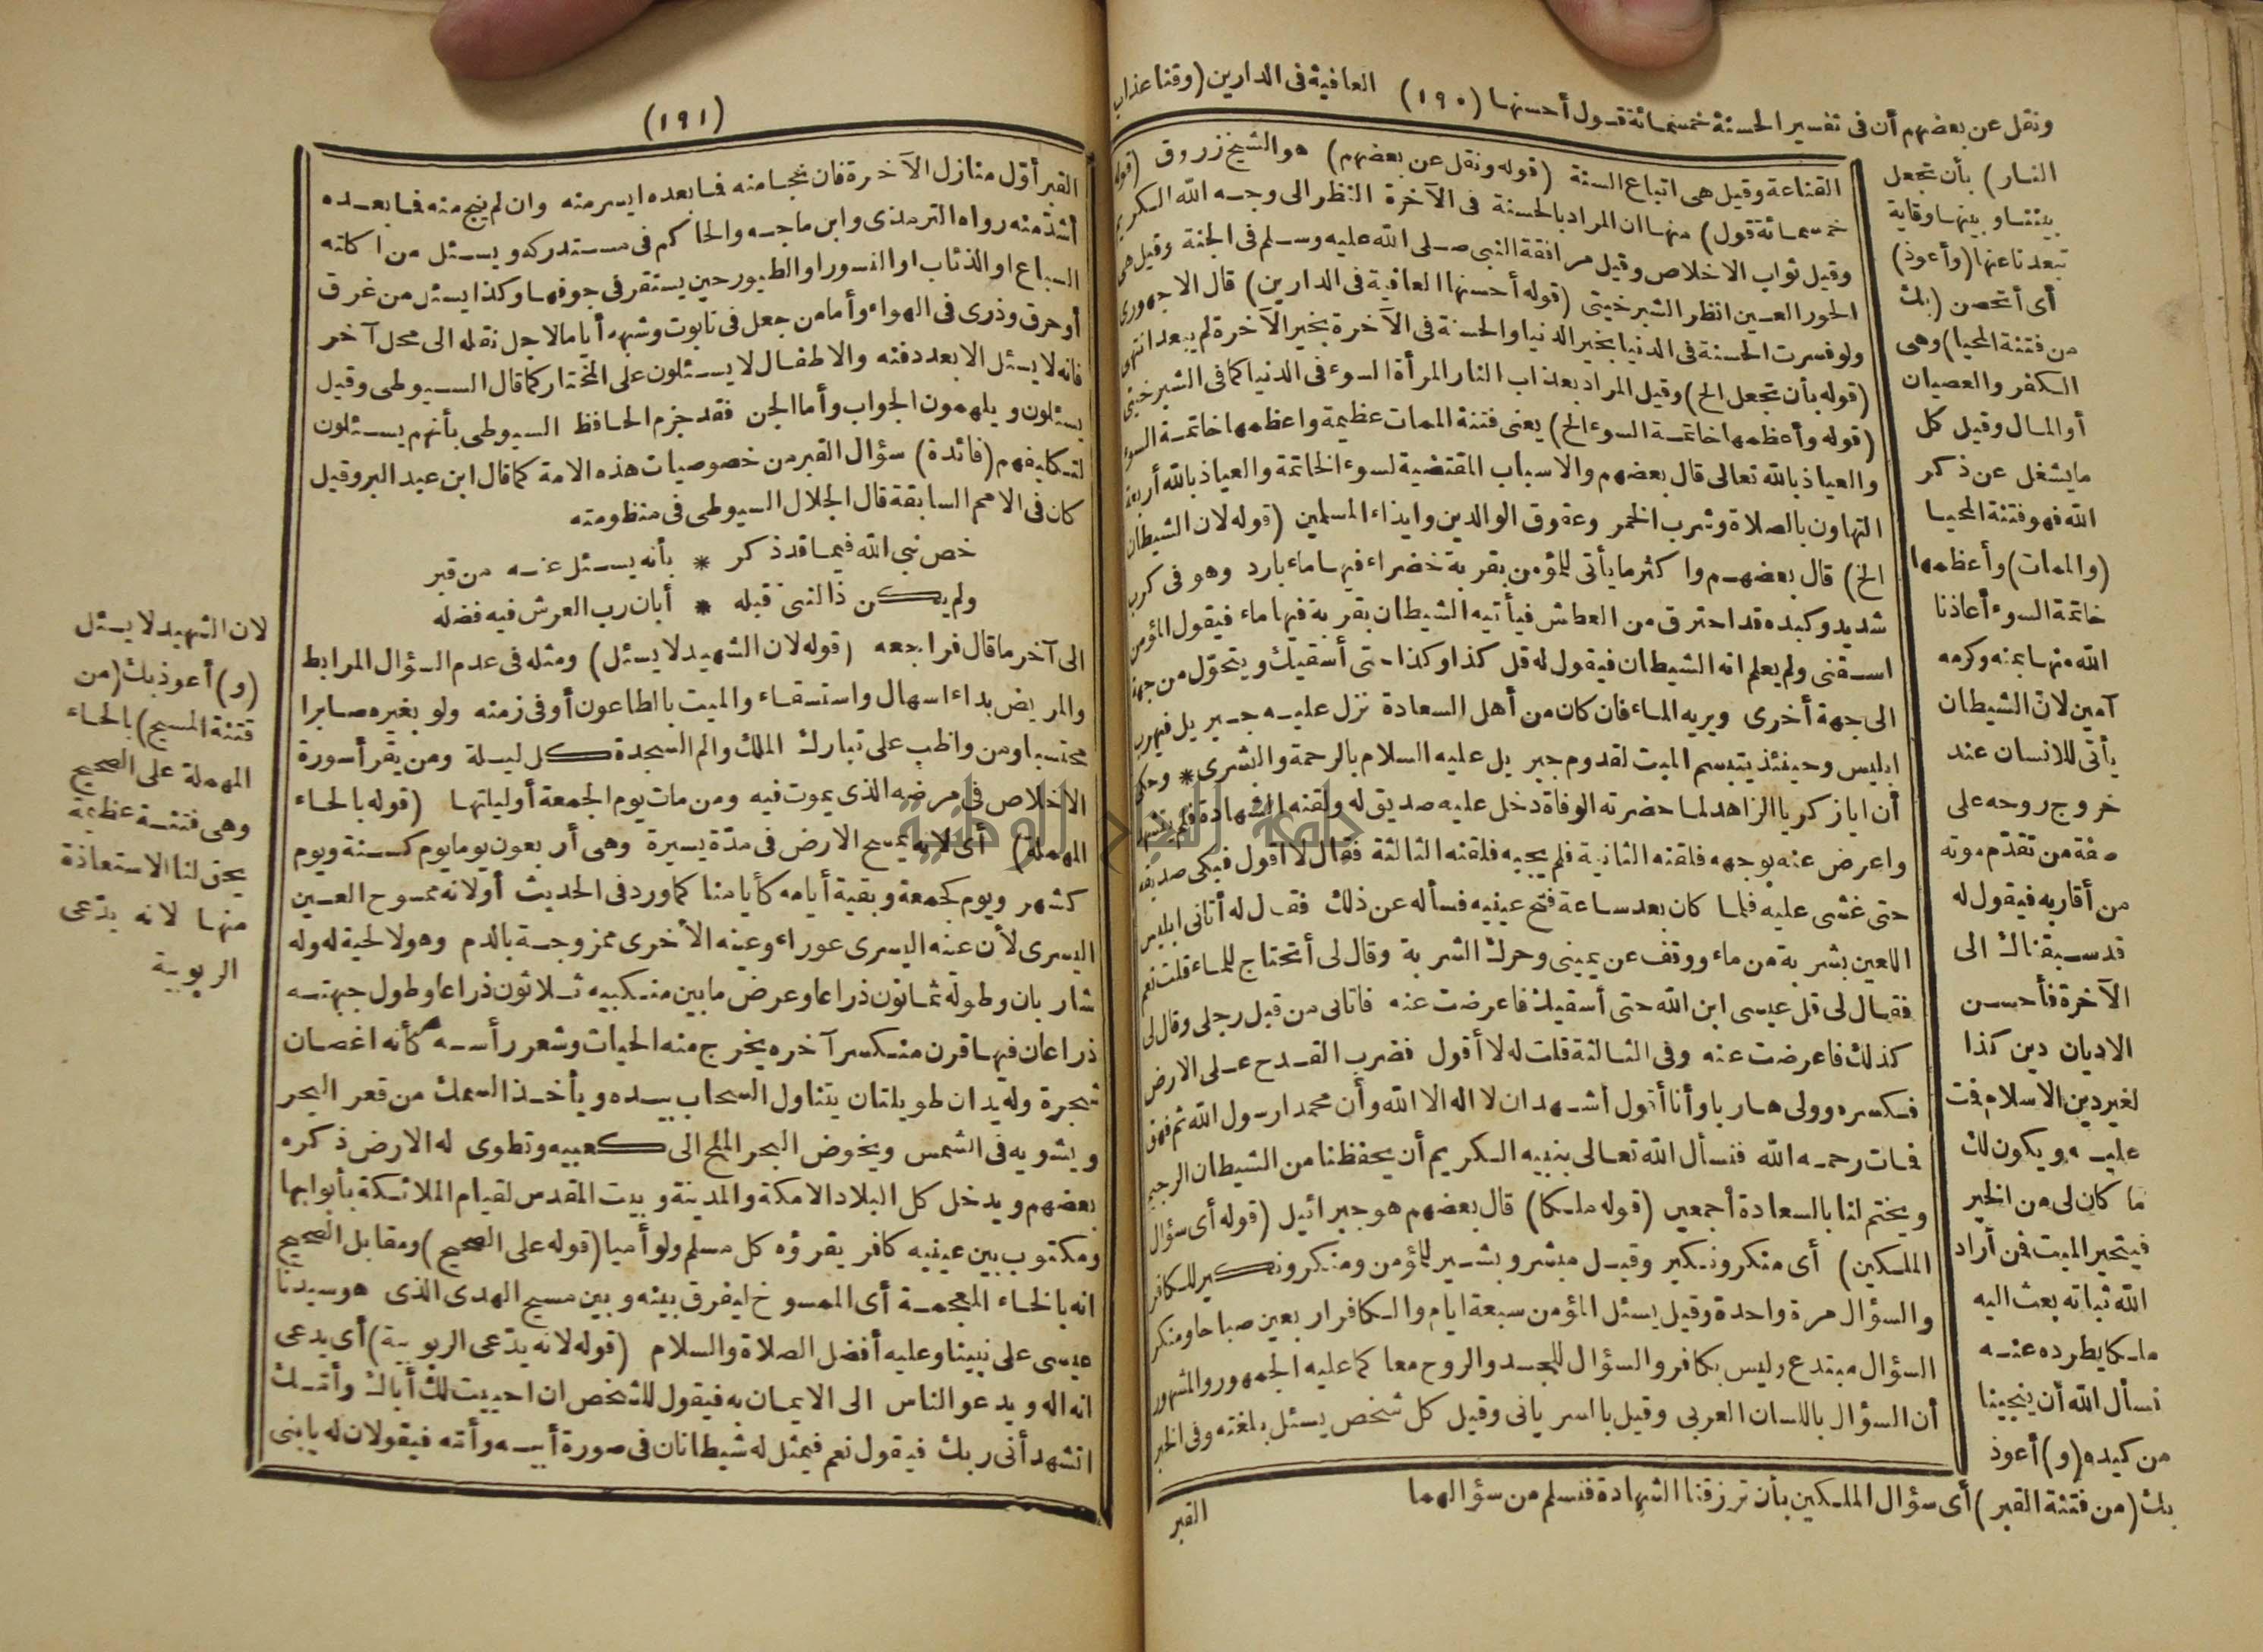 ونقل عن بعضهم أن فى تفسير الحسنة خمسمائة قول أحسنها (١٩٠) العافية فى الدارين (وقنا عذاب
النار) بأن تجعل
بيننا وبينها وقاية
تبعدنا عنها (وأعوذ)
أى أتحصن (بك
من فتنة المحيا) وهى
الكفر والعصيان
أو المال وقيل كل
ما يشغل عن ذكر
الله فهو فتنة المحيا
(والممات) وأعظمها
خاتمة السوء أعاذنا
الله منها بمنه وكرمه
آمين لان الشيطان
يأتى للانسان عند
خروج روحه على
صفة من تقدّم موته
من أقاربه فيقول له
قد سبقناك الى
الآخرة فأحسن
الاديان دين كذا
لغير دين الاسلام فمت
عليه ويكون لك
ما كان لى من الخير
فيتحير الميت فمن أراد
الله ثباته بعث اليه
ملكا يطرده عنه
نسأل الله أن ينجينا
من كيده (و) أعوذ
بك (من فتنة القبر) أى سؤال الملكين بأن ترزقنا الشهادة فنسلم من سؤالهما
القناعة وقيل هى اتباع السنة (قوله ونقل عن بعضهم) هو الشيخ زروق (قوله
خمسمائة قول) منها ان المراد بالحسنة فى الآخرة النظر الى وجه الله الكريم
وقيل ثواب الاخلاص وقيل مرافقة النبى صلى الله عليه وسلم فى الجنة وقيل هى
الحور العين انظر الشبرخيتى (قوله أحسنها العافية فى الدارين) قال الاجهورى
ولو فسرت الحسنة فى الدنيا بخير الدنيا والحسنة فى الآخرة بخير الآخرة لم يبعد انتهى
(قوله بأن تجعل الخ) وقيل المراد بعذاب النار المرأة السوء فى الدنيا كما فى الشبرخيتى
(قوله وأعظمها خاتمة السوء الخ) يعنى فتنة الممات عظيمة واعظمها خاتمة السوء
والعياذ بالله تعالى قال بعضهم والاسباب المقتضية لسوء الخاتمة والعياذ بالله أربعة
التهاون بالصلاة وشرب الخمر وعقوق الوالدين وايذاء المسلمين (قوله لان الشيطان
الخ) قال بعضهم واكثر ما يأتى للمؤمن بقربة خضراء فيها ماء بارد وهو فى كرب
شديد وكبده قد احترق من العطاش فيأتيه الشيطان بقربة فيها ماء فيقول المؤمن
اسقنى ولم يعلم انه الشيطان فيقول له قل كذا وكذا حتى أسقيك ويتحوّل من جهة
الى جهة أخرى ويريه الماء فان كان من أهل السعادة نزل عليه جبريل فيهرب
ابليس وحينئذ يتبسم الميت لقدوم جبريل عليه السلام بالرحمة والبشرى * وحكى
أن ابا زكريا الزاهد لما حضرته الوفاة دخل عليه صديق له ولقنه الشهادة فلم
واعرض عنه بوجهه فلقنه الثانية فلم يجبه فلقنه الثالثة فقال لا اقول فبكى صديقه
حتى غشى عليه فلما كان بعد ساعة فتح عينيه فسأله عن ذلك فقال له أتانى ابليس
اللعين بشربة من ماء ووقف عن يمينى وحرك الشربة وقال لى أتحتاج للماء قلت نعم
فقال لى قل عيسى ابن الله حتى أسقيك فاعرضت عنه فاتانى من قبل رجلى وقال لى
كذلك فاعرضت عنه وفى الثالثة قلت له لا أقول فضرب القدح على الارض
فكسره وولى هاربا وأنا أقول أشهد ان لا اله الا الله وأن محمدا رسول الله ثم فهق
فمات رحمه الله فنسأل الله تعالى بنبيه الكريم أن يحفظنا من الشيطان الرجيم
ويختم لنا بالسعادة أجمعين (قوله ملكا) قال بعضهم هو جبرائيل (قوله أى سؤال
الملكين) أى منكر ونكير وقيل مبشر وبشير للمؤمن ومنكر ونكير للكافر
والسؤال مرة واحدة وقيل يسئل المؤمن سبعة ايام والكافر اربعين صباحا ومنكر
السؤال مبتدع وليس بكافر والسؤال للجسد والروح معا كما عليه الجمهور والمشهور
أن السؤال باللسان العربى وقيل بالسريانى وقيل كل شخص يسئل بلغته وفى الخبر
القبر
(١٩١)
القبر أوّل منازل الآخرة فان نجا منه فما بعده ايسر منه وان لم ينج منه فما بعده
أشدّ منه رواه الترمذى وابن ماجه والحاكم فى مستدركه ويسئل من اكلته
السباع او الذئاب او النسور او الطيور حين يستقر فى جوفها وكذا يسئل من غرق
أو حرق وذرى فى الهواء وأما من جعل فى تابوت وشبهه أياما لاجل نقله الى محل آخر
فانه لا يسئل الا بعد دفنه والاطفال لا يسئلون على المختار كما قال السيوطى وقيل
يسئلون ويلهمون الجواب وأما الجن فقد جزم الحافظ السيوطى بأنهم يسئلون
لتكليفهم (فائدة) سؤال القبر من خصوصيات هذه الامة كما قال ابن عبد البر وقيل
كان فى الامم السابقة قال الجلال السيوطى فى منظومته
خص نبى الله فيما قد ذكر * بأنه يسئل عنه من قبر
ولم يكن ذا النبى قبله * أبان رب العرش فيه فضله
الى آخر ما قال فراجعه (قوله لان الشهيد لا يسئل) ومثله فى عدم السؤال المرابط
والمريض بداء اسهال واستسقاء والميت بالطاعون أو فى زمنه ولو بغيره صابرا
محتسبا ومن واظب على تبارك الملك والم السجدة كل ليلة ومن يقرأ سورة
الاخلاص فى مرضه الذى يموت فيه ومن مات يوم الجمعة أو ليلتها (قوله بالحاء
المهملة) أى لانه يمسح الارض فى مدّة يسيرة وهى أربعون يوما يوم كسنة ويوم
كشهر ويوم كجمعة وبقية أيامه كأيامنا كما ورد فى الحديث أو لانه ممسوح العين
اليسرى لأن عينه اليسرى عوراء وعينه الأخرى ممزوجة بالدم وهو لا لحية له وله
شاربان وطوله ثمانون ذراعا وعرض ما بين منكبيه ثلاثون ذراعا وطول جبهته
ذراعان فيها قرن منكسر آخره يخرج منه الحيات وشعر رأسه كأنه اغصان
شجرة وله يدان طويلتان يتناول السحاب بيده ويأخذ السمك من قعر البحر
ويشويه فى الشمس ويخوض البحر الملح الى كعبيه وتطوى له الارض ذكره
بعضهم ويدخل كل البلاد الا مكة والمدينة وبيت المقدس لقيام الملائكة بأبوابها
ومكتوب بين عينيه كافر يقرؤه كل مسلم ولو أميا (قوله على الصحيح) ومقابل الصحيح
انه بالخاء المعجمة أى الممسوخ ليفرق بينه وبين مسيح الهدى الذى هو سيدنا
عيسى على نبينا وعليه أفضل الصلاة والسلام (قوله لانه يدّعى الربوبية) أى يدعى
انه اله ويدعو الناس الى الايمان به فيقول للشخص ان احييت لك أباك وأمك
اتشهد أنى ربك فيقول نعم فيمثل له شيطانان فى صورة أبيه وأمه فيقولان له يا بنى
لان الشهيد لا يسئل
(و) أعوذ بك (من
فتنة المسيح) بالحاء
المهملة على الصحيح
وهى فتنة عظيمة
يحق لنا الاستعاذة
منها لانه يدّعى
الربوبية
جامعة النجاح الوطنية